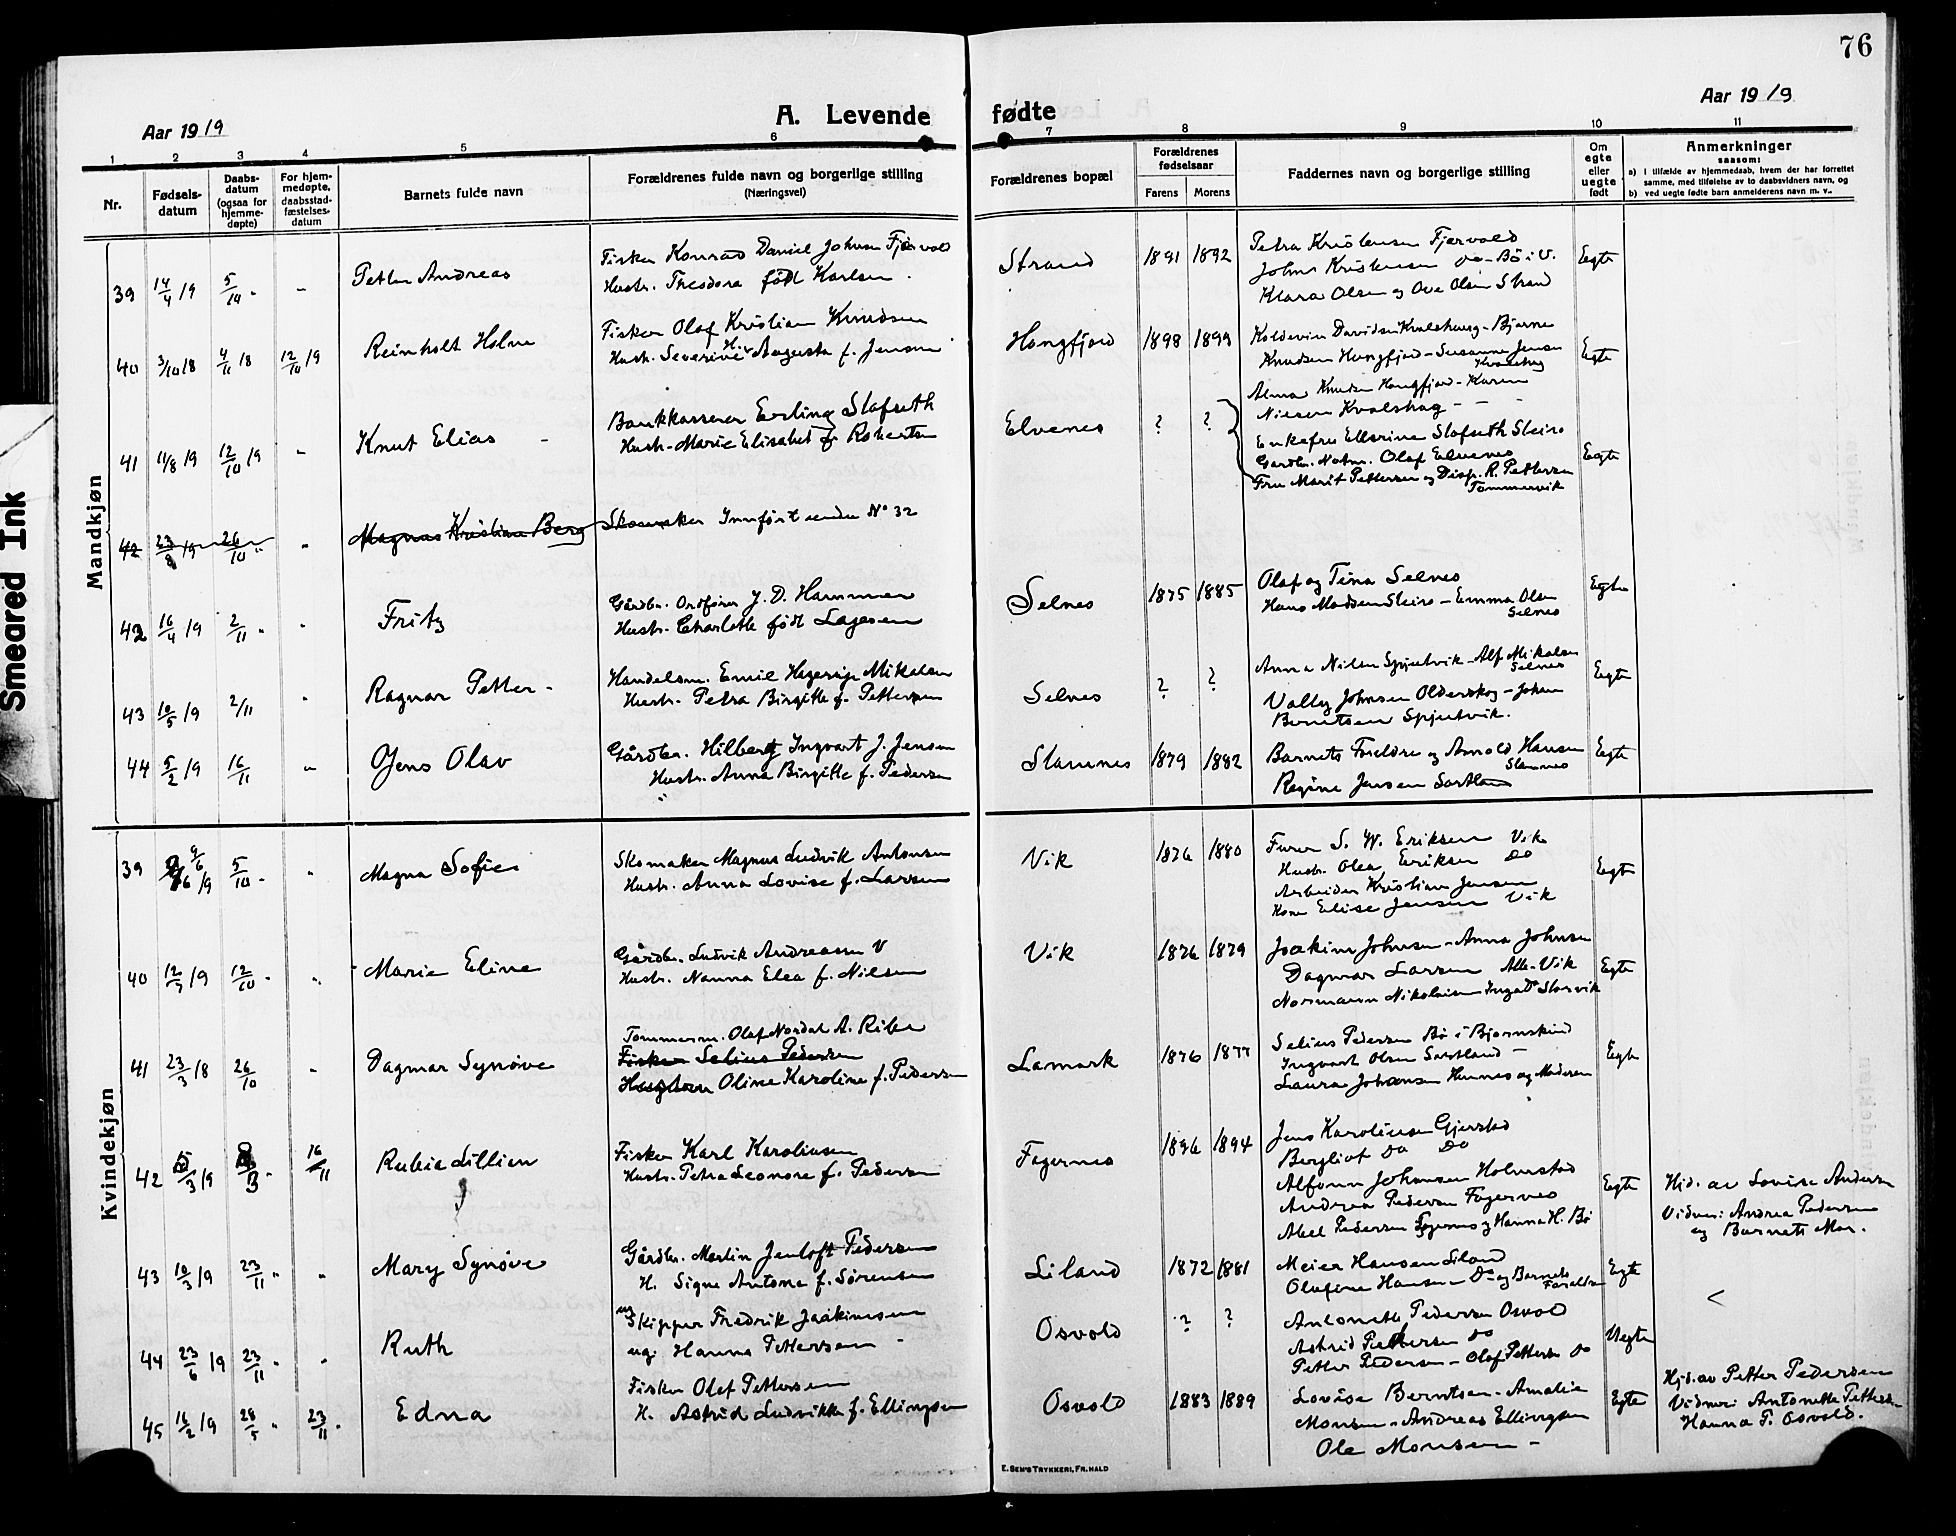 76
Aar 1919
A. Levende
fødte
Aar 1919
1 2 3 4 5 6 7 8 9 10 11
Nr.
Fødsels-
datum
Daabs-
datum
(ogsaa for
hjemme-
døpte)
For hjem-
medøpte,
daabsstad-
fæstelses-
datum
Barnets fulde navn
Forældrenes fulde navn og borgerlige stilling
(Næringsvei)
Forældrenes bopæl
Forældrenes
fødselsaar
Farens Morens
Faddernes navn og borgerlige stilling
Om
egte
eller
uegte
født
Anmerkninger
saasom:
a) i tilfælde av hjemmedaab, hvem der har forrettet
samme, med tilføielse av to daabsvidners navn, og
b) ved uegte fødte barn anmelderens navn m. v..
Smeared Ink
Mandkjøn
39 14/4 19 5/10 " " Petter Andreas
Fisker Konrad Daniel Johnsen Fjærvold
Hustr. Theodora født Karlsen.
Strand 1891 1892
Petra Kristensen Fjervold
Johns Kristensen do - Bø i V.
Klara Olsen og Ove Olsen Strand
Egte
40 3/10 18 4/11 18 12/10 19 Reinholt Holm
Fisker Olaf Kristian Knudsen
Hustr. Severine Augusta f. Jensen
Hongfjord 1898 1899
Davidsen Kvalshaug - Bjarne
Knudsen Hongfjord - Susanne Jensen
Kvalshag
Alma Knudsen Hongfjord - Karen
Nilsen Kvalshag - - -
Egte
41 11/8 19 12/10 19 " Knut Elias -
Bankkasserer Erling Slafseth
Hustr. Marie Elisabet f. Robertsen
Elvenes ? ?
Enkefru Ellerine Slafseth Steiro
Gardbr. Olaf Elvenes
Fru Marit Pettersen og Disp. R. Pettersen
Tømmervik
Egte
42 23/8 19 26/10 " " Magnus Kristian Berg
Skomaker Innført under No 32
42 16/4 19 2/11 " " Fritz
Gårdbr. Ordfører J. D. Hammer
Hustr. Charlotte født Lagesen
Selnes 1875 1885
Olaf og Tina Selnes
Hans Madsen Steiro - Emma Olsen
Selnes
Egte
43 10/5 19 2/11 " Ragnar Petter -
Handelsm. Emil Hagerup Mikalsen
Hustr. Petra Birgitte f. Pettersen
Selnes ? ?
Anna Nilsen Spjutvik - Alf Mikalsen
Selnes
Vally Johnsen Olderskog - Johan
Berntsen Spjutvik.
Egte
44 5/2 19 16/11 " Jens Olav
Gårdbr. Hilberg Ingvart J. Jensen
Hustr. Anna Birgitte f. Pedersen
Slamnes 1879 1882
Barnets Foreldre og Arnold Hansen
Slamnes
Regine Jensen Sortland
Egte
Kvindekjøn
39 9/6 19 5/10 " " Magna Sofie
Skomaker Magnus Ludvik Antonsen
Hustr. Anna Lovise f. Larsen
Vik 1876 1880
Furer S. W. Eriksen Vik
Hustr. Olea Eriksen Do
Arbeider Kristian Jensen
Kone Elise Jensen Vik
Egte
40 12/7 19 12/10 " " Marie Eline
Gårdbr. Ludvik Andreassen V
Hustr. Nanna Elea f. Nilsen
Vik 1876 1879
Joakim Johnsen - Anna Johnsen
Dagmar Larsen Alle - Vik
Normann Nikolaisen Inga Do Storvik
Egte
41 23/3 18 26/10 " Dagmar Synøve
Tømmerm. Olaf Nordal A. Riber
Fisker Selius Pedersen
Hustru Oline Karoline f. Pedersen
Lamark 1876 1877
Selius Pedersen Bø i Bjørnskind
Ingvart Olsen Sortland -
Laura Johansen Hennes og Moderen
Egte
42 15/3 19 3 " 16/11 Rubie Lillian
Fisker Karl Karoliusen
Hustr. Petra Leonore f. Pedersen
Fagernes 1896 1894
Jens Karoliusen Gjerstad
Bergliot Do Do
Alfonn Johansen Holmstad
Andrea Pedersen Fagernes
Abel Pedersen Fagernes og Hanna H. Bø
Egte
Hjd. av Lovise Andersen
Vidner: Andrea Pedersen
og Barnets Mor.
43 10/3 19 23/11 " " Mary Synøve
Gårdbr. Martin Jentoft Pedersen
H. Signe Antona f. Sørensen
Liland 1872 1881
Meier Hansen Liland
Olufine Hansen Do og Barnets
Foreldre
Egte
44 23/6 19 23/11 " " Ruth
ug Skipper Fredrik Joakimsen
ug. Hanna Pettersen -
Osvold ? ?
Antonette Pedersen Osvold
Astrid Pettersen do
Petter Pedersen - Olaf Pettersen do
Uegte
45 16/2 19 28/5 " 23/11 " Edna
Fisker Olaf Pettersen
H. Astrid Ludvikke f. Ellingsen
Osvold 1883 1889
Lovise Berntsen - Amalie
Monsen - Andreas Ellingsen
Ole Monsen -
Egte
Hjd. av Petter Pedersen
Vidner: Antonette Pettersen
Hanna P. Osvold.
E. SEM'S TRYKKERI, FR.HALD